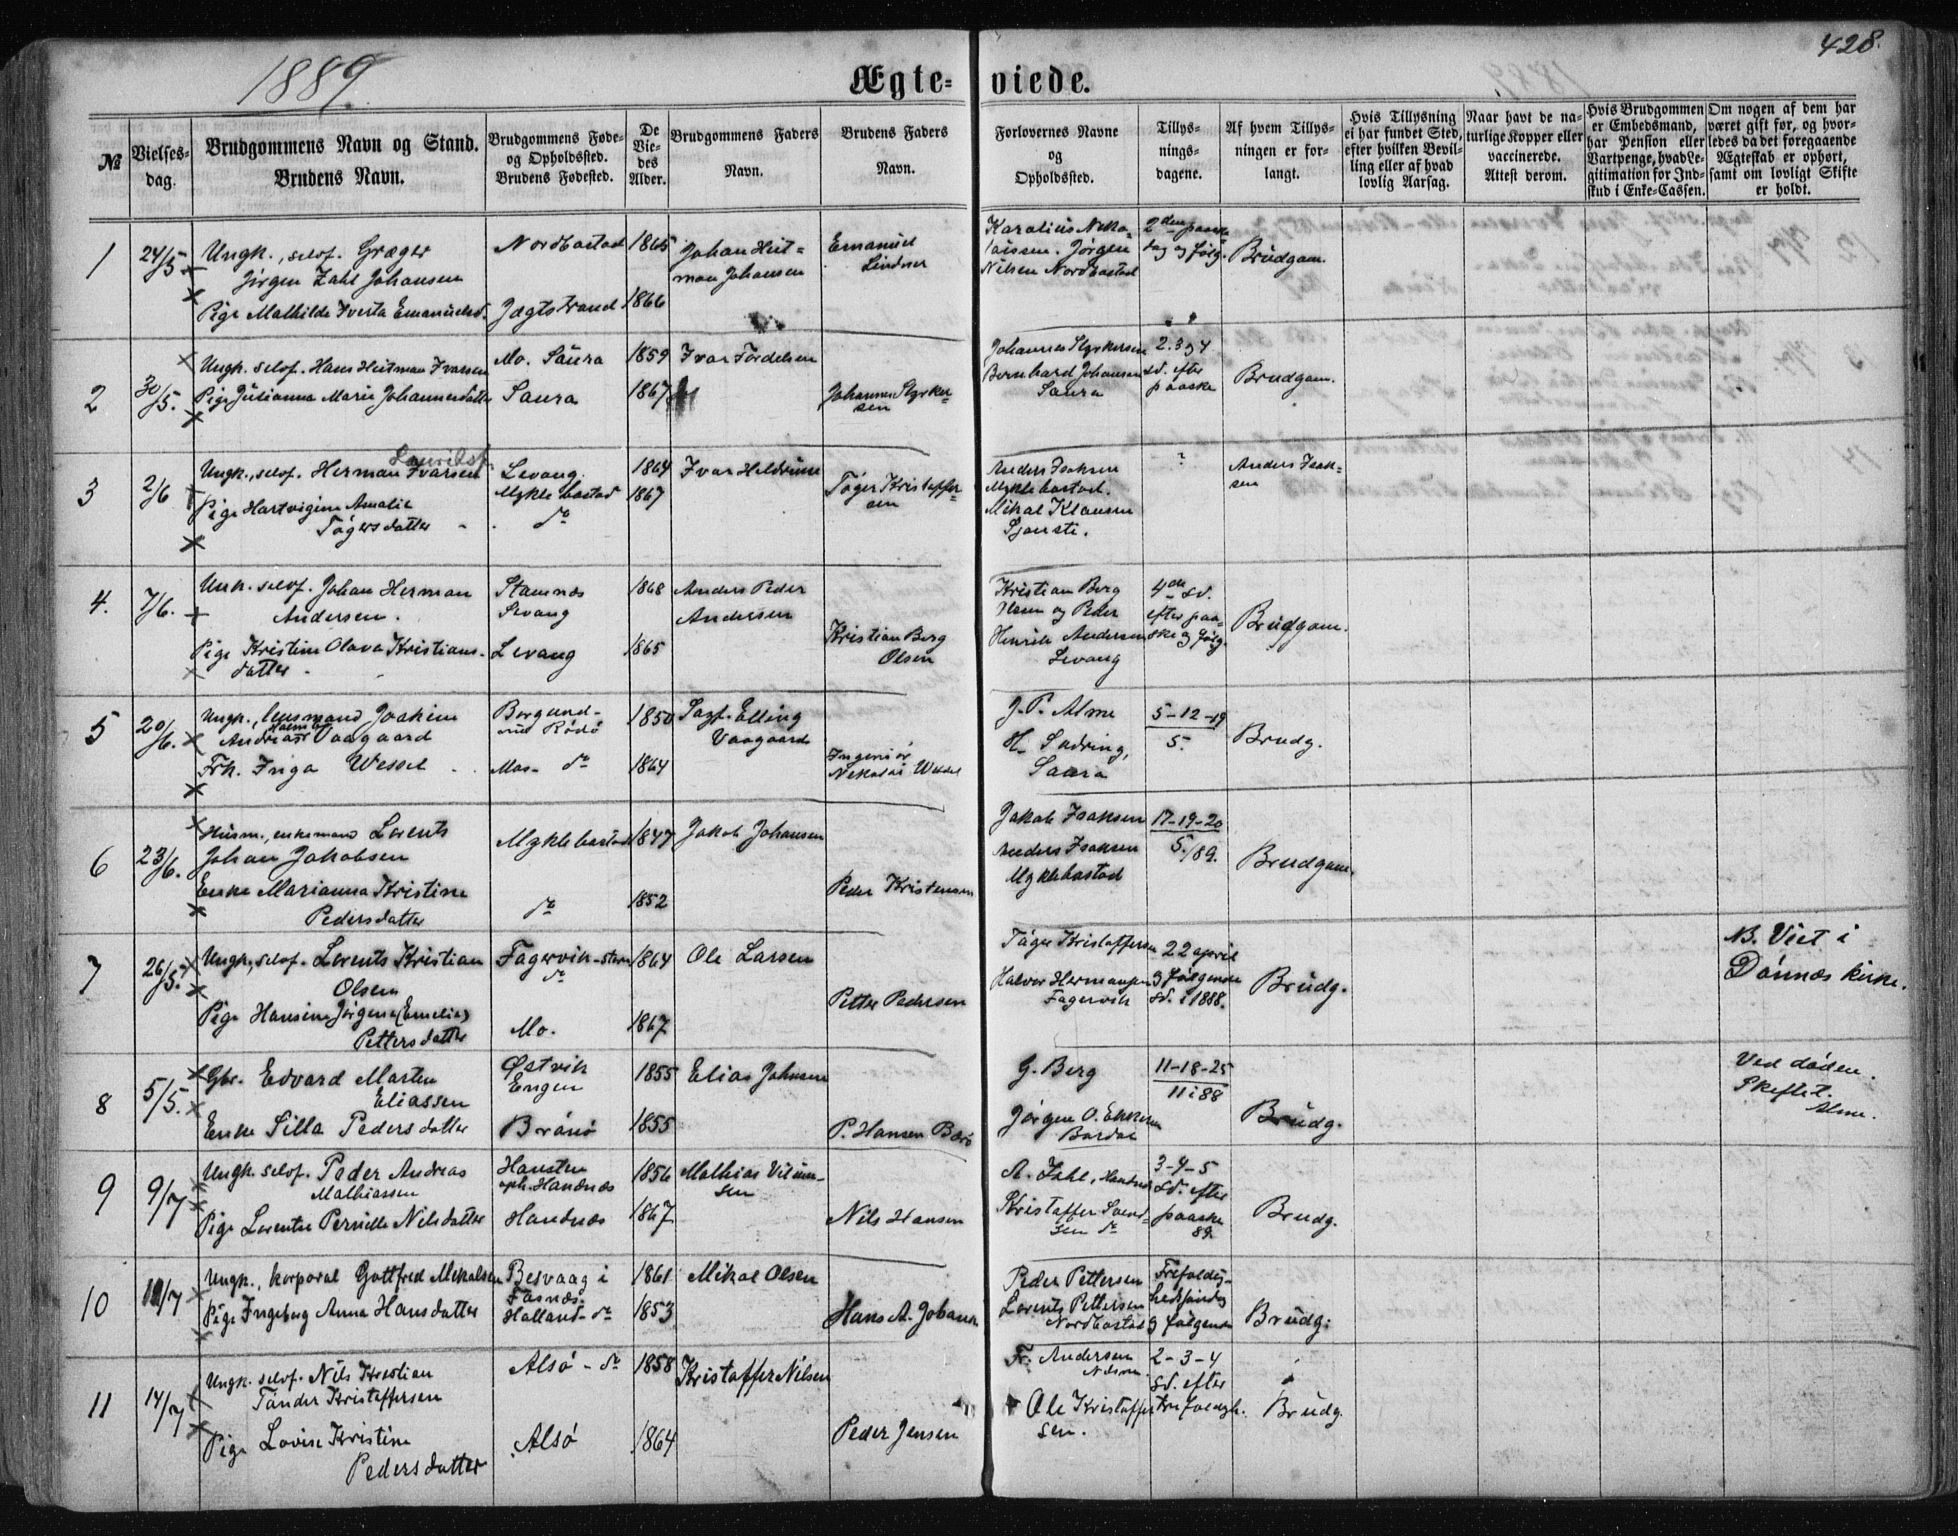 1889.
428.
Ægte- viede.
№
Vielses-
dag.
Brudgommens Navn og Stand.
Brudens Navn.
Brudgommens Føde-
og Opholdssted.
Brudens Fødested.
De
Vie-
des
Alder.
Brudgommens Faders
Navn.
Brudens Faders
Navn.
Forlovernes Navne
og
Opholdssted.
Tillys-
nings-
dagene.
Af hvem Tillys-
ningen er for-
langt.
Hvis Tillysning
ei har fundet Sted,
efter hvilken Bevil-
ling eller af hvad
lovlig Aarsag.
Naar havt de na-
turlige Kopper eller
vaccinerede.
Attest derom.
Hvis Brudgommen
er Embedsmand,
har Pension eller
Vartpenge, hvad Le-
gitimation for Ind-
skud i Enke-Cassen.
Om nogen af dem har
været gift før, og hvor-
ledes da det foregaaende
Ægteskab er ophørt,
samt om lovligt Skifte
er holdt.
1
24/5
Ungk., selvf. Græger
Jørgen Zahl Johansen
Pige Mathilde Iversta Emanuelsd.
Nordbastad
Jægtstrand
1865
1866
Johan Heit-
man Johansen
Emanuel
Lindner
Karolius Niko-
laissen. Jørgen
Nilsen Nordbastad
2den paaske
dag og følg.
Brudgom.
2
30/5.
Ungk. selvf. Hans Heitman Ivarsen
Pige Julianna Marie Johannesdatter
Mo. Saura
Saura
1859
1867
Ivar Tordelsen
Johannes Styrker-
sen
Johannes Styrkersen
Bernhard Johansen
Saura
2. 3 og 4
sd. efter
paaske
Brudgam.
3
2/6
Ungk., selvf. Herman Ivarsen
Pige Hartvigine Amalie
Tøgersdatter
Levang.
Myklebastad
do
1864
1867
Ivar Heldrime
Tøger Kristoffer-
sen
Anders Isaksen
Myklebastad.
Mikal Klausen
Sjonsti.
?
Anders Isak-
sen
4.
7/6.
Unk. selvf. Johan Herman
Andersen.
Pige Kristine Olava Kristians-
datter
Stamnæs
Levang
Levang
1868
1865
Anders Peder
Andersen
Kristian Berg
Olsen
Kristian Berg
Olsen og Peder
Henrik Andersen
Levang
4de sd.
efter paa-
ske og følg.
Brudgom.
5
20/6.
Ungk., lensmand Joakim
Andreas Vaagaard
Frk. Inga Wessel
Borgund-
Rødø
Mo- do
1850
1864
Sagf. Elling
Vaagaard
Ingeniør
Nikolai Wessel
J. P. Alme
H. Sedring,
Saura
5-12-19
5.
Brudg.
6
23/6.
Husm., enkemand Lorents
Johan Jakobsen
Enke Marianna Kristine
Pedersdatter
Myklebastad
do
1847
1852
Jakob Johansen
Peder Kristensen
Jakob Isaksen
Anders Isaksen
Myklebastad
17-19-20
5./89.
Brudgom.
7
26/5.
Ungk., selvf. Lorents Kristian
Olsen
Pige Hansine Jørgine (Emelie)
Pettersdatter
Fagervik
do
Mo.
1864
1867
Ole Larsen
Petter Pedersen
Tøger Kristoffersen
Halvor Hermansen
Fagervik
22 april
og følgende
sd. i 1888.
Brudg.
NB. Viet i
Dønnæs kirke.
8
5/5.
Gbr. Edvard Marten
Eliassen
Enke Silla Pedersdatter
Østvik
Engen
Brønø
1855
1855
Elias Johnsen
P. Hansen Barø
G. Berg
Jørgen O.
Bardal
11-18-25
11 i 88
Brudg.
Ved døden.
Skiftet.
Alme.
9
9/7
Ungk. selvf. Peder Andreas
Mathiassen
Pige Lorentse Pernille Nilsdatter
Hansten
oph. Handnæs
Handnæs
1856
1867
Mathias Vilum-
sen
Nils Hansen
A. Zahl, Handnæs
Kristoffer Svend-
sen do
3-4-5
sd. efter
paaske
89.
Brudg.
10
11/7
Ungk., korporal Gottfred Mikalsen
Pige Ingeborg Anna Hansdatter
Besvaag i
Fosnæs.
Halland- do
1861
1853
Mikal Olsen
Hans A. Johansen
Peder Pettersen
Lorents Pettersen
Nordbastad
Trefoldig-
hedssøndag
og følgende
Brudg:
11
14/7
Ungk. selvf. Nils Kristian
Tønder Kristoffersen
Pige Lovise Kristine
Pedersdatter
Alsø - do
Alsø
1858
1864
Kristoffer Nilsen
Peder Jensen
Fr. Andersen
Nilsen
Ole Kristoffer-
sen.
2-3-4
sd. efter
trefoldigh.
Brudg.